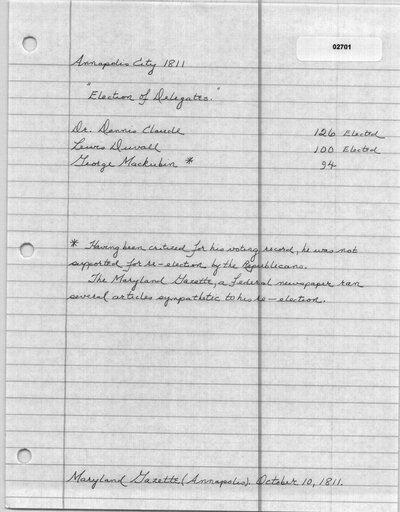 02701
Annapolis City 1811
"Election of Delegates."
Dr. Dennis Claude 126 Elected
Lewis Duvall 100 Elected
George Mackubin * 94
* Having been critized for his voting record, he was not
supported for re-election by the Republicans.
The Maryland Gazette, a Federal newspaper ran
several articles sympathetic to his re-election.
Maryland Gazette (Annapolis). October 10, 1811.